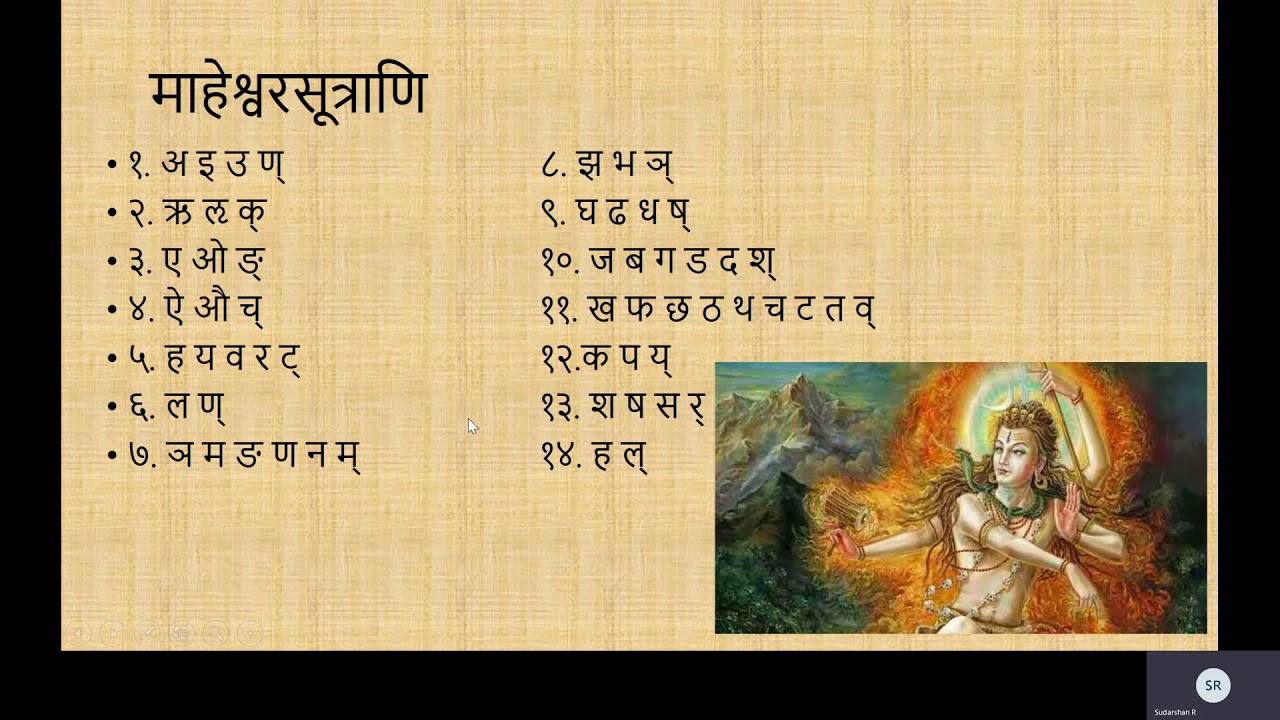 माहेश्वरसूत्राणि
• १. अ इ उ ण्
• २. ऋ ऌ क्
• ३. ए ओ ङ्
• ४. ऐ औ च्
• ५. ह य व र ट्
• ६. ल ण्
• ७. ञ म ङ ण न म्
८. झ भ ञ्
९. घ ढ ध ष्
१०. ज ब ग ड द श्
११. ख फ छ ठ थ च ट त व्
१२.क प य्
१३. श ष स र्
१४. ह ल्
SR
Sudarshan R